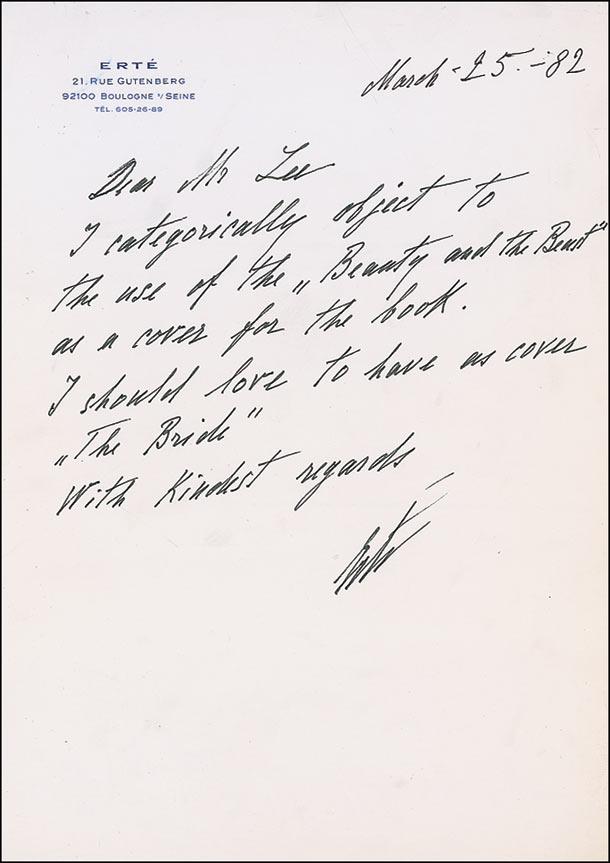 ERTÉ
21, RUE GUTENBERG
92100 BOULOGNE s/SEINE
TÉL. 605-26-89
March - 25. - 82
Dear Mr Lee
I categorically object to
the use of the „Beauty and the Beast"
as a cover for the book.
I should love to have as cover
„The Bride"
With Kindest regards
Erté